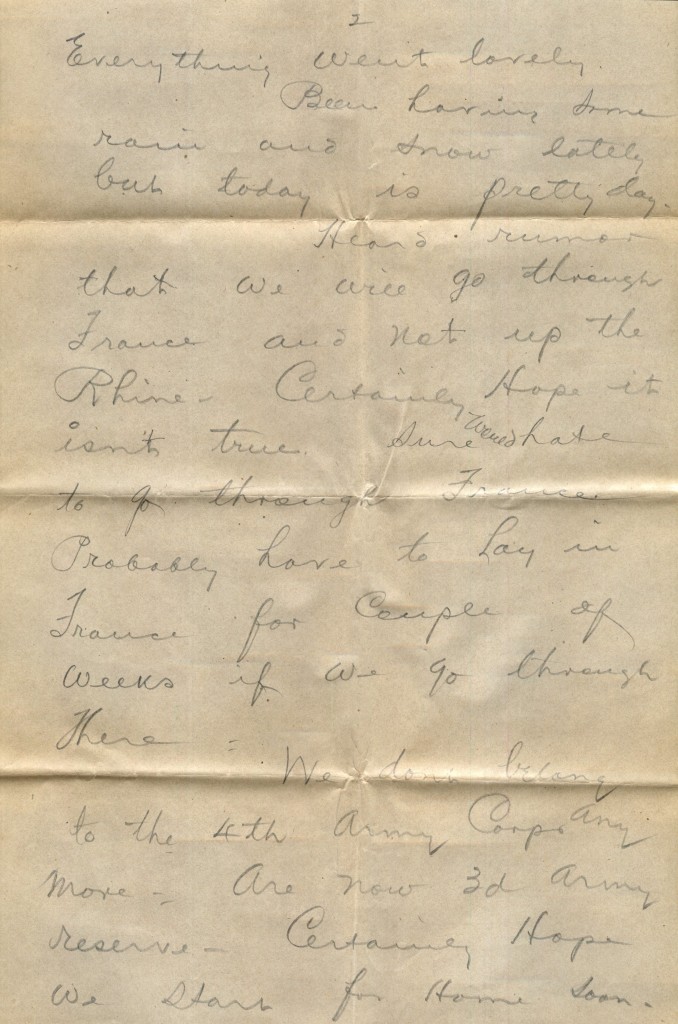 2
Everything went lovely.
Been having some
rain and snow lately
but today is pretty day.
Heard rumor
that we will go through
France and not up the
Rhine - Certainly Hope it
isn't true. Sure would hate
to go through France.
Probably have to lay in
France for couple of
weeks if we go through
There -
We don't belong
to the 4th Army Corps any
more - Are now 3d Army
reserve - Certainly Hope
we start for Home soon.